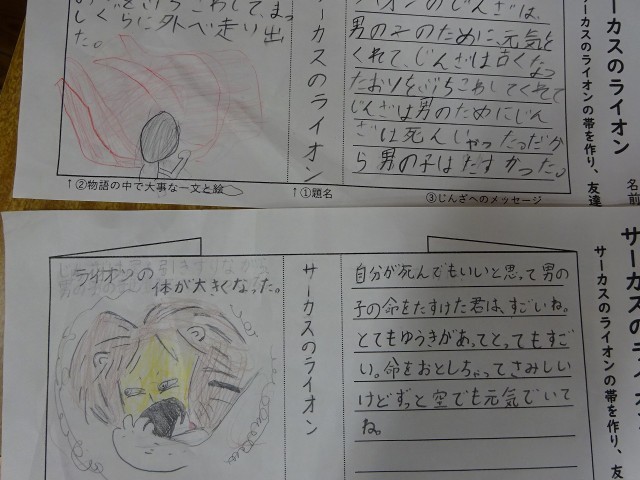 サーカスのライオン
サーカスのライオンの帯を作り、友達
名前
ライオンのじんざは、
男の子のために、元気を
くれて、じんざは古くなっ
たおりをぶちこわしてくれて
じんざは男のためにじん
ざは死んじゃったっだか
ら男の子はたすかった。
③じんざへのメッセージ
サーカスのライオン
↑①題名
をぶちこわして、まっ
しくらに外へ走り出
た。
↑②物語の中で大事な一文と絵
サーカスのライ
サーカスのライオンの帯を作り、友
自分が死んでもいいと思って男の
子の命をたすけた君は、すごいね。
とてもゆうきがあってとってもすご
い。命をおとしちゃってさみしい
けどずっと空でも元気でいて
ね。
サーカスのライオン
ライオンの
体が大きくなった。